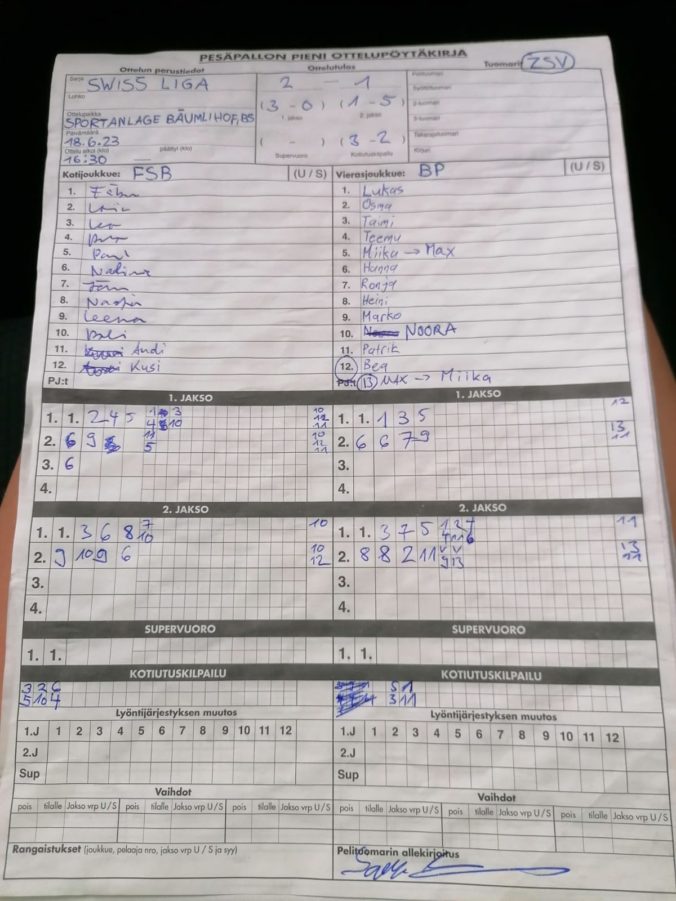 PESÄPALLON PIENI OTTELUPÖYTÄKIRJA
Ottelun perustiedot
Ottelutulos
Tuomarit ZSV
Sarja SWISS LIGA
2 — 1
Pelituomari
Lohko
(3 - 0) (1 - 5)
Syöttötuomari
Ottelupaikka
1. jakso 2. jakso
2-tuomari
SPORTANLAGE BÄUMLIHOF, BS
3-tuomari
Päivämäärä
18.6.23
( - ) (3 - 2)
Takarajatuomari
Ottelu alkoi (klo) päättyi (klo)
Supervuoro Kotiutuskilpailu
Kirjuri
16:30 —
Kotijoukkue: FSB (U / S)
Vierasjoukkue: BP (U / S)
1.
2.
3. Lea
4.
5.
6. Nadine
7.
8. Nadja
9. Leena
10.
11. Andi
12. Kusi
PJ:t
1. Lukas
2. Osma
3. Taimi
4. Teemu
5. Miika → Max
6. Hanna
7. Ronja
8. Heini
9. Marko
10. NOORA
11. Patrik
12. Bea
PJ:t 13 MAX → Miika
1. JAKSO
1. 1. 2 4 5
10
12
11
2. 6 9
11
5
10
12
11
3. 6
4.
1. JAKSO
1. 1. 1 3 5
12
2. 6 6 7 9
13
11
3.
4.
2. JAKSO
1. 1. 3 6 8
7
10
10
2. 9 10 9 6
10
12
3.
4.
2. JAKSO
1. 1. 3 7 5
11
2. 8 8 2 11
13
11
3.
4.
SUPERVUORO
1. 1.
SUPERVUORO
1. 1.
KOTIUTUSKILPAILU
3 2 6
5 10 4
KOTIUTUSKILPAILU
5 1
3 11
Lyöntijärjestyksen muutos
1.J 1 2 3 4 5 6 7 8 9 10 11 12
2.J
Sup
Lyöntijärjestyksen muutos
1.J 1 2 3 4 5 6 7 8 9 10 11 12
2.J
Sup
Vaihdot
pois tilalle Jakso vrp U / S pois tilalle Jakso vrp U / S pois tilalle Jakso vrp U / S
Vaihdot
pois tilalle Jakso vrp U / S pois tilalle Jakso vrp U / S pois tilalle Jakso vrp U / S
Rangaistukset (joukkue, pelaaja nro, jakso vrp U / S ja syy)
Pelituomarin allekirjoitus